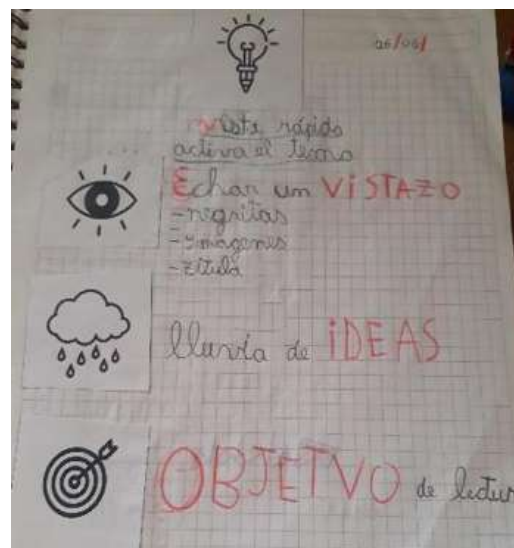 26/04/
vista rápida
activa el tema
Echar un VISTAZO
-negritas
-imagenes
-título
lluvia de iDEAS
OBJETVO de lectur